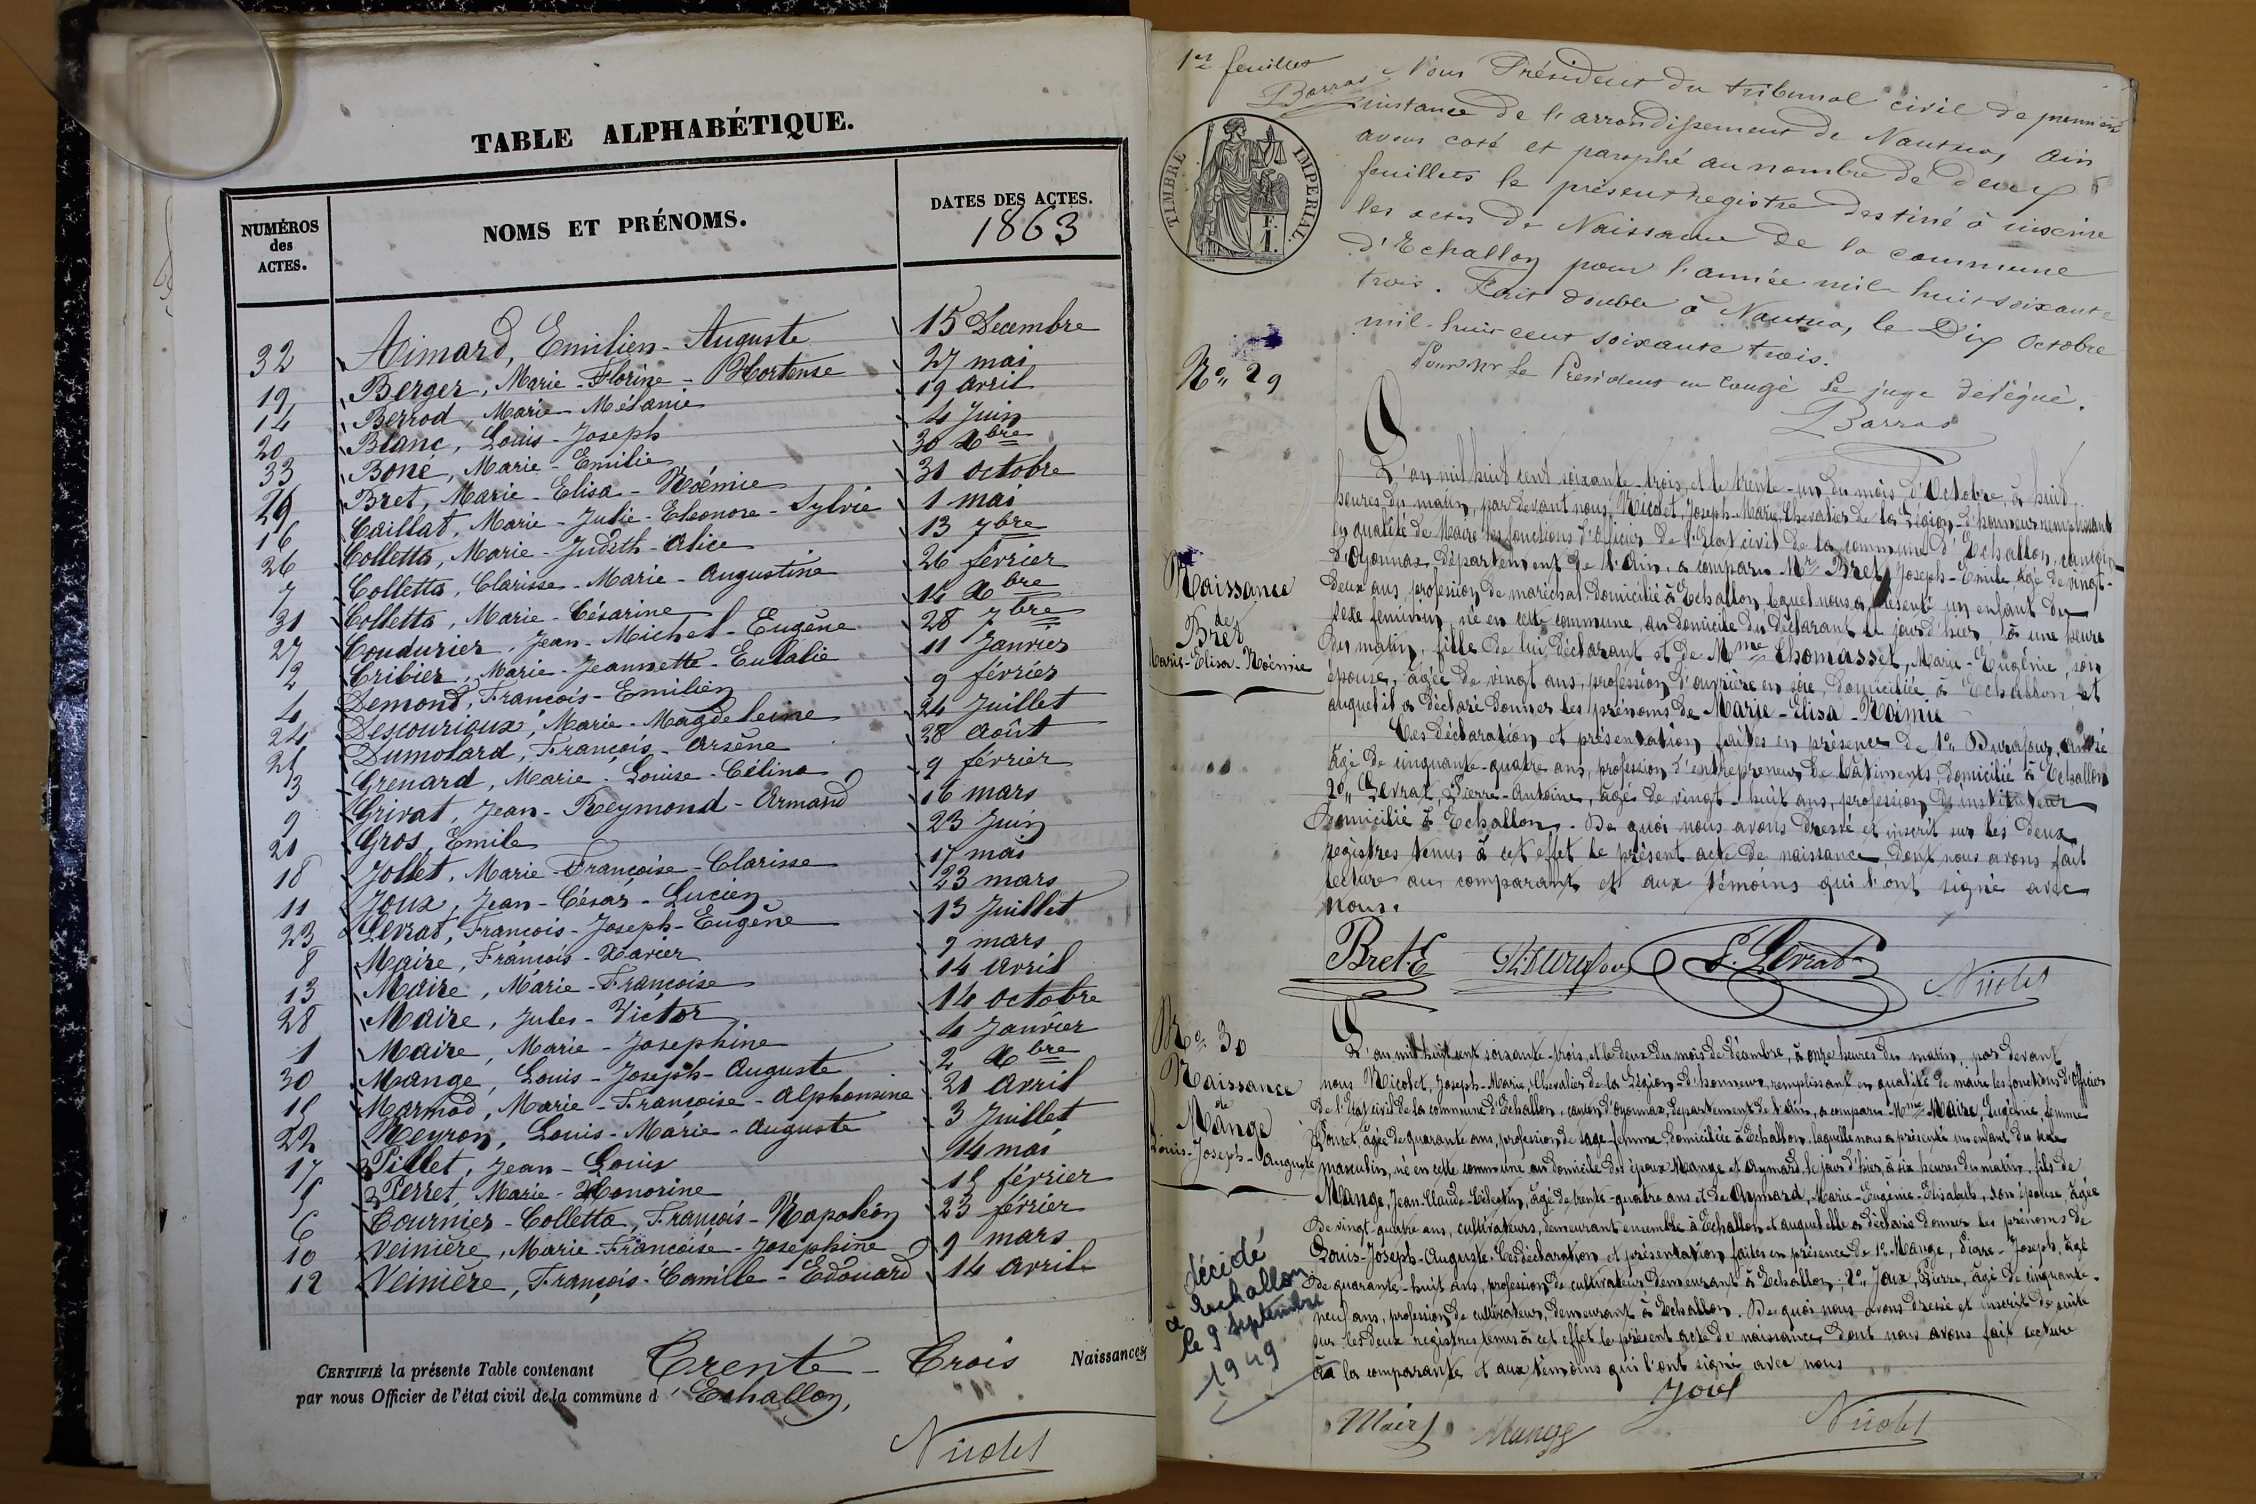 TABLE ALPHABÉTIQUE.
NUMÉROS des ACTES.
NOMS ET PRÉNOMS.
DATES DES ACTES.
1863
32 Aimard, Emilien-Auguste 15 Decembre
19 Berger, Marie-Florine-Hortense 27 mai
14 Berrod, Marie-Mélanie 19 avril
20 Blanc, Louis-Joseph 4 Juin
33 Bone, Marie-Emilie 30 Xbre
29 Bret, Marie-Elisa-Noémie 31 octobre
16 Caillat, Marie-Julie-Eleonore-Sylvie 1 mai
26 Colletta, Marie-Judith-Alice 13 7bre
7 Colletta, Clarisse-Marie-Augustine 26 février
31 Colletta, Marie-Césarine 14 Xbre
27 Coudurier, Jean-Michel-Eugène 28 7bre
2 Cribier, Marie-Jeannette-Eulalie 11 Janvier
4 Demond, François-Emilien 9 février
24 Descourioux, Marie-Magdeleine 24 Juillet
25 Dumolard, François-Arsène 28 Août
3 Grenard, Marie-Louise-Célina 9 février
9 Grivat, Jean-Reymond-Armand 16 mars
21 Gros, Emile 23 Juin
18 Jollet, Marie-Françoise-Clarisse 17 mai
11 Joux, Jean-César-Lucien 23 mars
23 Levrat, François-Joseph-Eugène 13 Juillet
8 Maire, François-Xavier 9 mars
13 Maire, Marie-Françoise 14 avril
28 Maire, Jules-Victor 14 octobre
1 Maire, Marie-Josephine 4 Janvier
30 Mange, Louis-Joseph-Auguste 2 Xbre
15 Marmod, Marie-Françoise-Alphonsine 21 avril
22 Neyron, Louis-Marie-Auguste 3 Juillet
17 Pillet, Jean-Louis 14 mai
5 Perret, Marie-Honorine 15 février
6 Tournier-Colletta, François-Napoléon 23 février
10 Veinière, Marie-Françoise-Josephine 9 mars
12 Veinière, François-Camille-Edouard 14 avril
CERTIFIÉ la présente Table contenant Trente-Trois Naissances
par nous Officier de l'état civil de la commune d'Echallon,
Nicolet
1er feuillet
Barras
TIMBRE IMPERIAL.
1 F.
Nous Président du tribunal civil de première
instance de l'arrondissement de Nantua, Ain
avons coté et paraphé au nombre de deux
feuillets le présent registre destiné à inscrire
les actes de Naissance de la commune
d'Echallon pour l'année mil huit soixante
trois. Fait double à Nantua, le Dix Octobre
mil-huit cent soixante trois.
Pour Mr Le Président en congé le juge délégué.
Barras
No. 29
Naissance
de
Bret
Marie-Elisa-Noémie
L'an mil huit cent soixante-trois, et le trente-un du mois d'Octobre, à huit
heures du matin, par devant nous, Nicolet, Joseph-Marie, Chevalier de la Légion-d'honneur remplissant
en qualité de Maire les fonctions d'officier de l'Etat civil de la commune d'Echallon, canton
d'Oyonnax, Département de l'Ain, a comparu Mr Bret, Joseph-Emile, âgé de vingt-
deux ans, profession de maréchal, domicilié à Echallon, lequel nous a présenté un enfant du
sexe féminin, né en cette commune, au domicile du déclarant le jour d'hier à une heure
du matin, fille de lui déclarant et de Mme Chomasset, Marie-Eugénie, son
épouse, âgée de vingt ans, profession d'ouvrière en soie, domiciliée à Echallon et
auquel il a déclaré donner les prénoms de Marie-Elisa-Noémie
Ces déclaration et présentation faites en présence de 1o Durafour, André
âgé de cinquante-quatre ans, profession d'entrepreneur de bâtiments, domicilié à Echallon
2o Levrat, Pierre-Antoine, âgé de vingt-huit ans, profession d'instituteur
domicilié à Echallon. De quoi nous avons dressé et inscrit sur les deux
registres tenus à cet effet le présent acte de naissance, dont nous avons fait
lecture au comparant et aux témoins qui l'ont signé avec
nous.
Bret E Durafour Levrat Nicolet
No. 30
Naissance
de
Mange
Louis-Joseph-Auguste
L'an mil huit cent soixante-trois, et le deux du mois de Décembre, à onze heures du matin, par devant
nous Nicolet, Joseph-Marie, Chevalier de la Légion-d'honneur, remplissant en qualité de maire les fonctions d'officier
de l'Etat civil de la commune d'Echallon, canton d'Oyonnax, département de l'Ain, a comparu Mme Maire, Eugénie, femme
Poncet, âgée de quarante ans, profession de sage-femme domiciliée à Echallon, laquelle nous a présenté un enfant du sexe
masculin, né en cette commune au domicile des époux Mange et Aymard, le jour d'hier, à six heures du matin, fils de
Mange, Jean-Claude, âgé de trente-quatre ans et de Aymard, Marie-Eugénie-Elisabeth, son épouse, âgée
de vingt-quatre ans, cultivateurs, demeurant ensemble à Echallon et auquel elle a déclaré donner les prénoms de
Louis-Joseph-Auguste. Ces déclaration et présentation faites en présence de 1o Mange, Pierre-Joseph, âgé
de quarante-huit ans, profession de cultivateur demeurant à Echallon; 2o Joux, Pierre, âgé de cinquante-
neuf ans, profession de cultivateur, demeurant à Echallon. De quoi nous avons dressé et inscrit de suite
sur les deux registres tenus à cet effet le présent acte de naissance, dont nous avons fait lecture
à la comparante et aux témoins qui l'ont signé avec nous
Maire Mange Joux Nicolet
décédé
à Echallon
le 9 septembre
1949